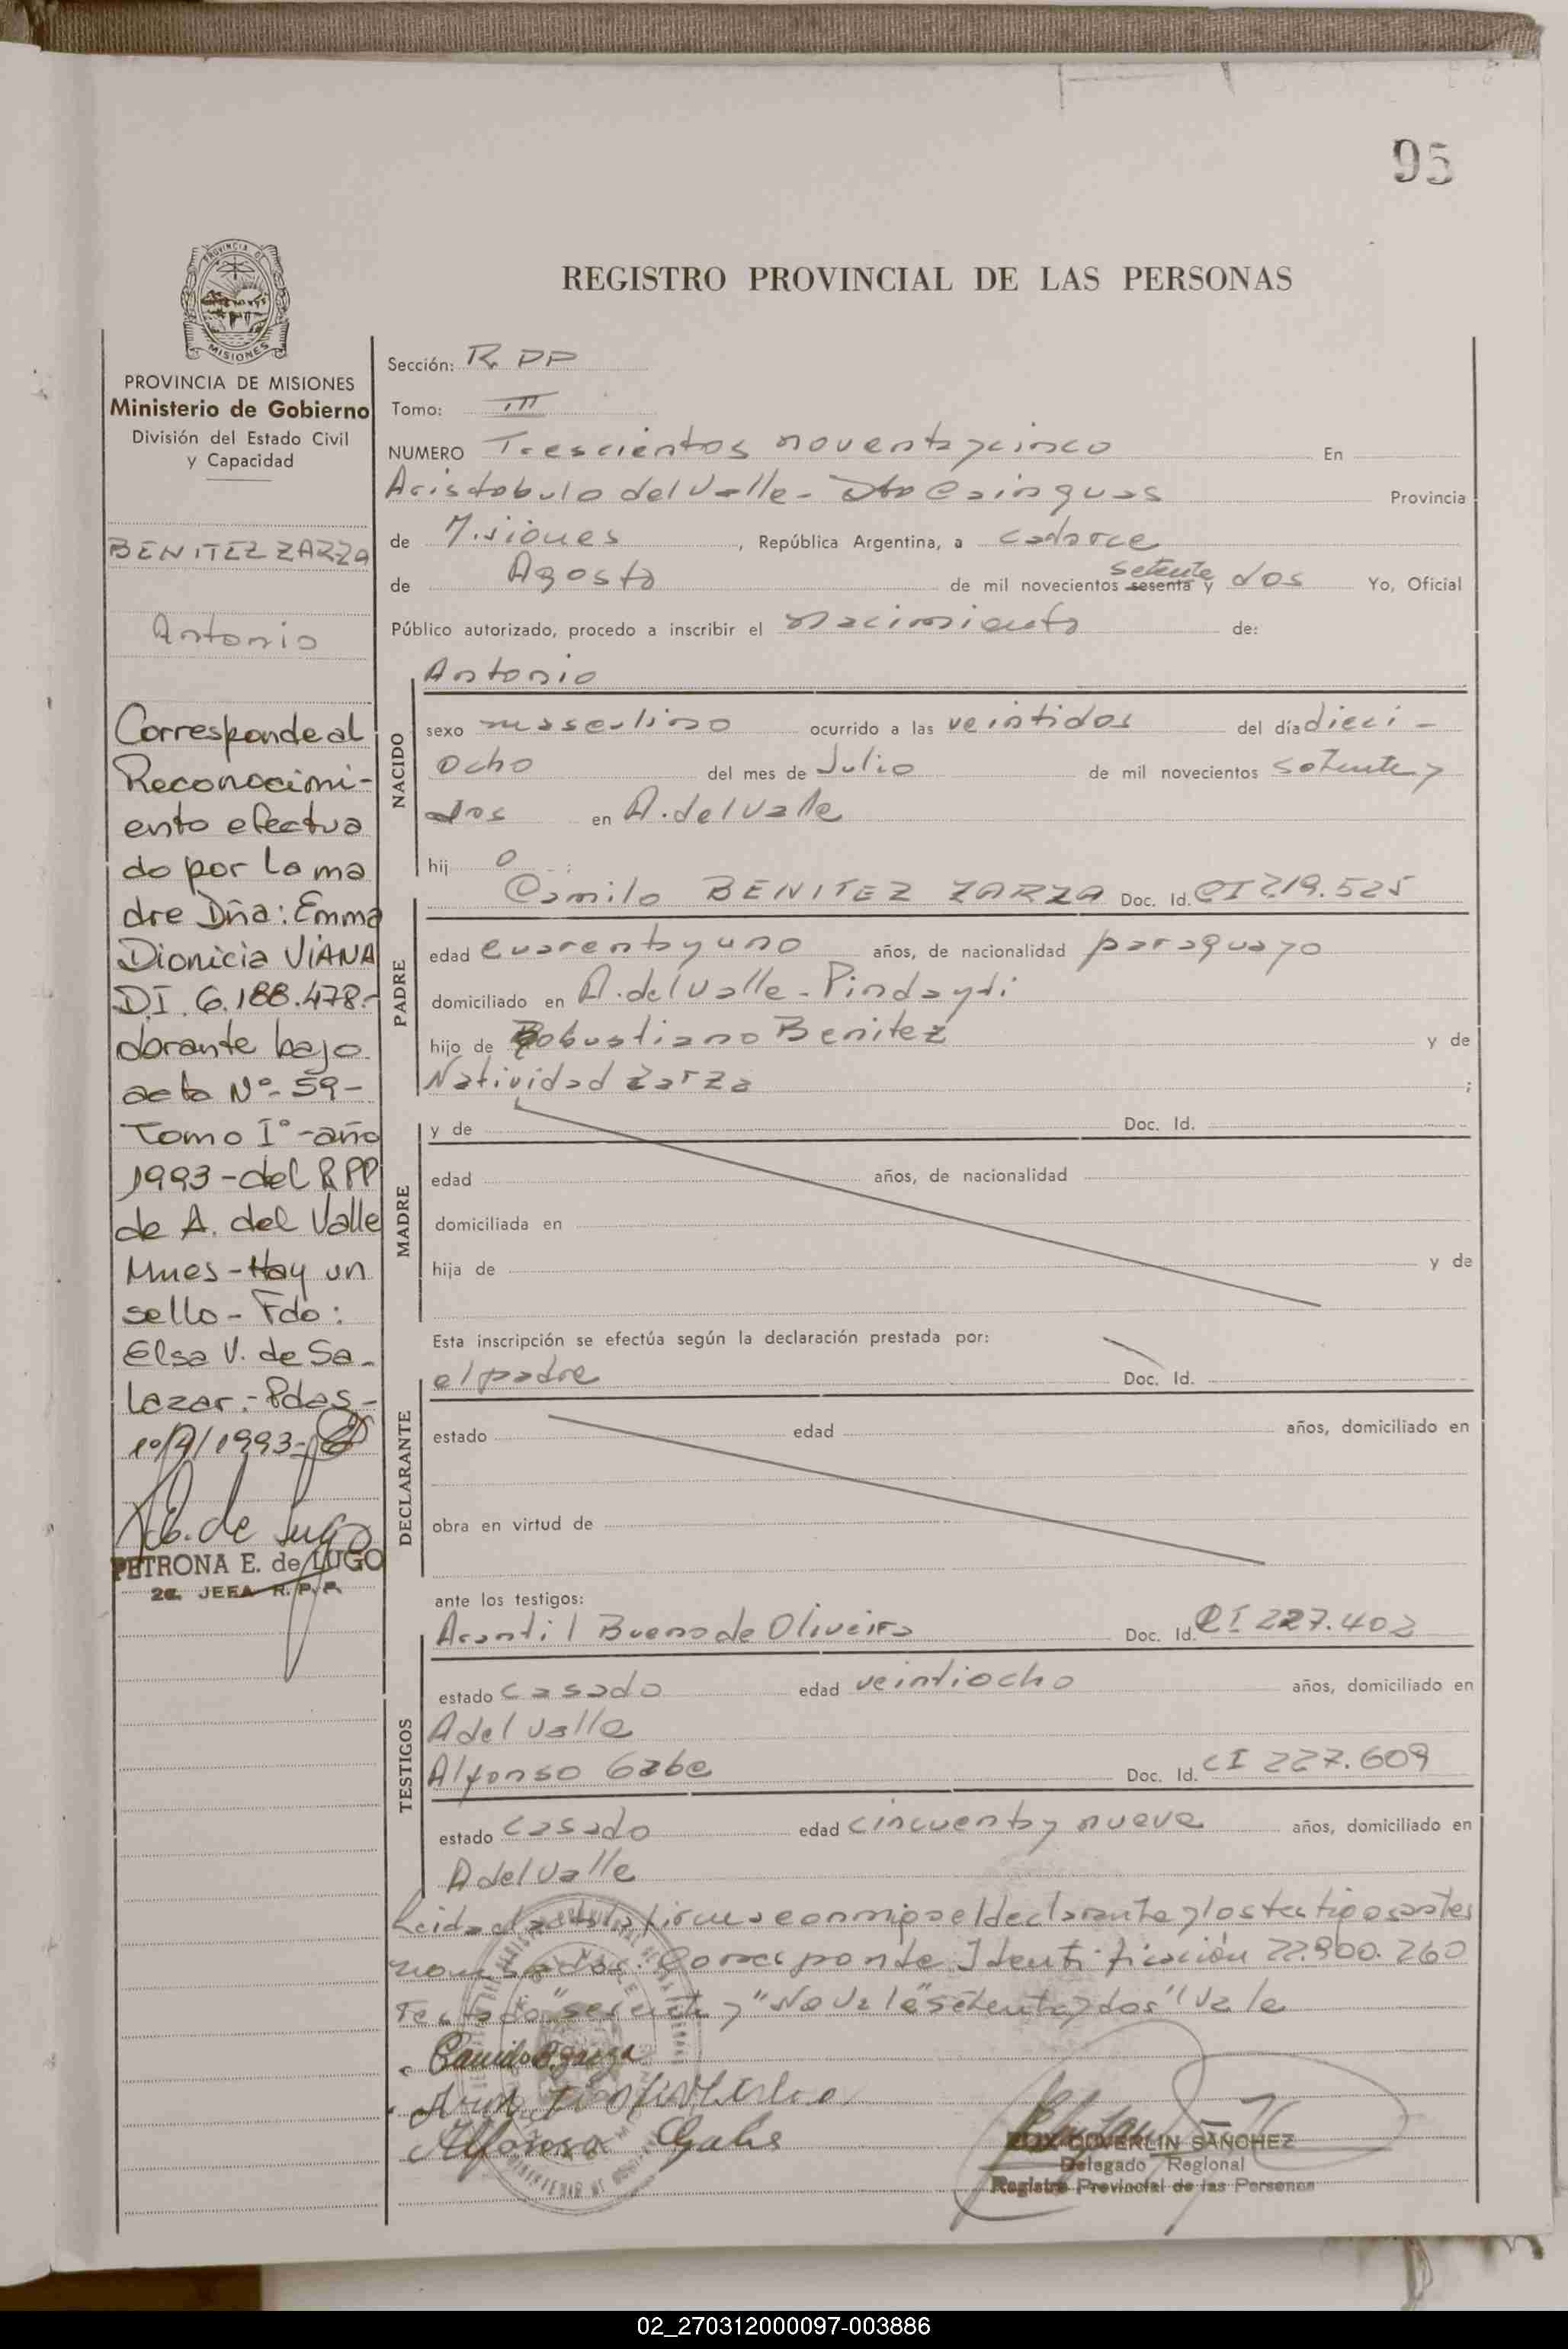 95
REGISTRO PROVINCIAL DE LAS PERSONAS
PROVINCIA DE MISIONES
PROVINCIA DE MISIONES
Ministerio de Gobierno
División del Estado Civil
y Capacidad
BENITEZ ZARZA
Antonio
Corresponde al
Reconocimi-
ento efectua
do por la ma
dre Dña: Emma
Dionicia VIANA
D.I. 6.188.478.-
obrante bajo
acta Nº- 59-
Tomo Iº-año
1993-del RPP
de A. del Valle
Mnes-Hay un
sello- Fdo:
Elsa V. de Sa-
lazar.- Pdas-
/1993-
PETRONA E. de LUGO
2a. JEFA R.P.P.
Sección: R PP
Tomo: III
NUMERO Trescientos noventa y cinco En
Aristobulo del Valle- Dto Cainguas Provincia
de Misiones, República Argentina, a catorce
de Agosto de mil novecientos sesenta setenta y dos Yo, Oficial
Público autorizado, procedo a inscribir el nacimiento de:
Antonio
NACIDO
sexo masculino ocurrido a las veintidos del día dieci-
ocho del mes de Julio de mil novecientos setenta y
dos en A. del Valle
hij o :
PADRE
Camilo BENITEZ ZARZA Doc. Id. CI 219.525
edad cuarenta y uno años, de nacionalidad paraguayo
domiciliado en A. del Valle - Pindayti
hijo de Robustiano Benitez y de
Natividad Zarza ;
MADRE
y de Doc. Id.
edad años, de nacionalidad
domiciliada en
hija de y de
Esta inscripción se efectúa según la declaración prestada por:
DECLARANTE
el padre Doc. Id.
estado edad años, domiciliado en
obra en virtud de
ante los testigos:
TESTIGOS
Arantil Bueno de Oliveira Doc. Id. CI 227.402
estado casado edad veintiocho años, domiciliado en
A del Valle
Alfonso Gabe Doc. Id. CI 227.609
estado casado edad cincuenta y nueve años, domiciliado en
A del Valle
Leida el acta la firma conmigo el declarante y los testigos antes
nombrados. Corresponde Identificación 22.900.260
Testado "sesenta y" No Vale "setenta y dos" Vale
Camilo B. Zarza
Alfonso Gabe
DOVERLIN SANCHEZ
Delegado Regional
Registro Provincial de las Personas
02_270312000097-003886